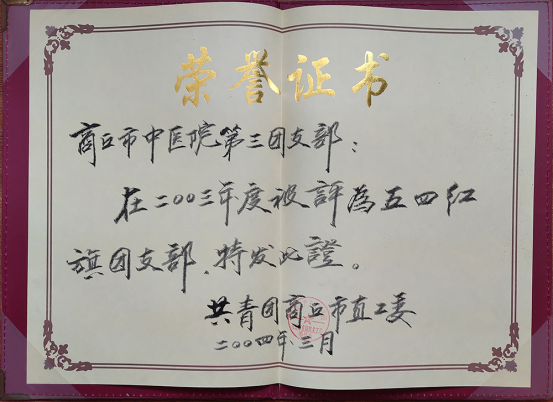 荣誉证书
商丘市中医院第三团支部：
在二〇〇三年度被评为五四红
旗团支部、特发此證。
共青团商丘市直工委
二〇〇四年三月